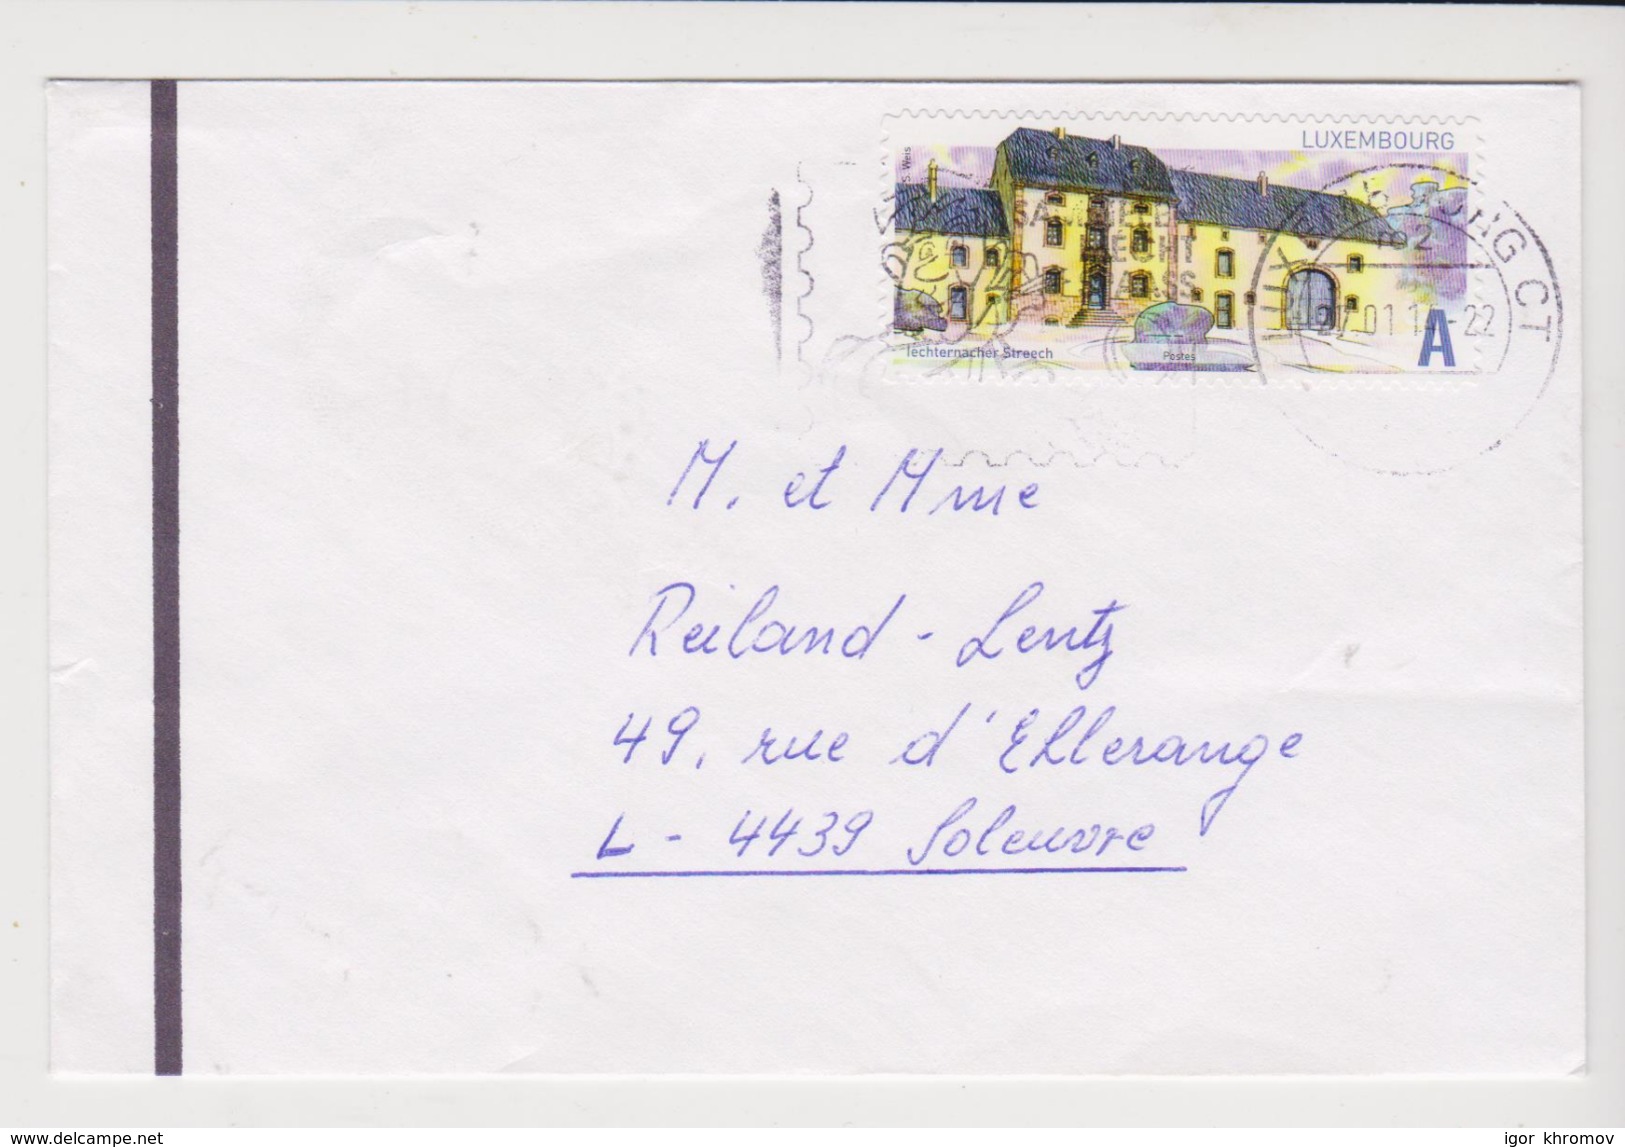 LUXEMBOURG
S. Weis
Iechternacher Streech
Postes
A
M. et Mme
Reiland - Lentz
49, rue d'Ehlerange
L - 4439 Soleuvre
www.delcampe.net
igor khromov